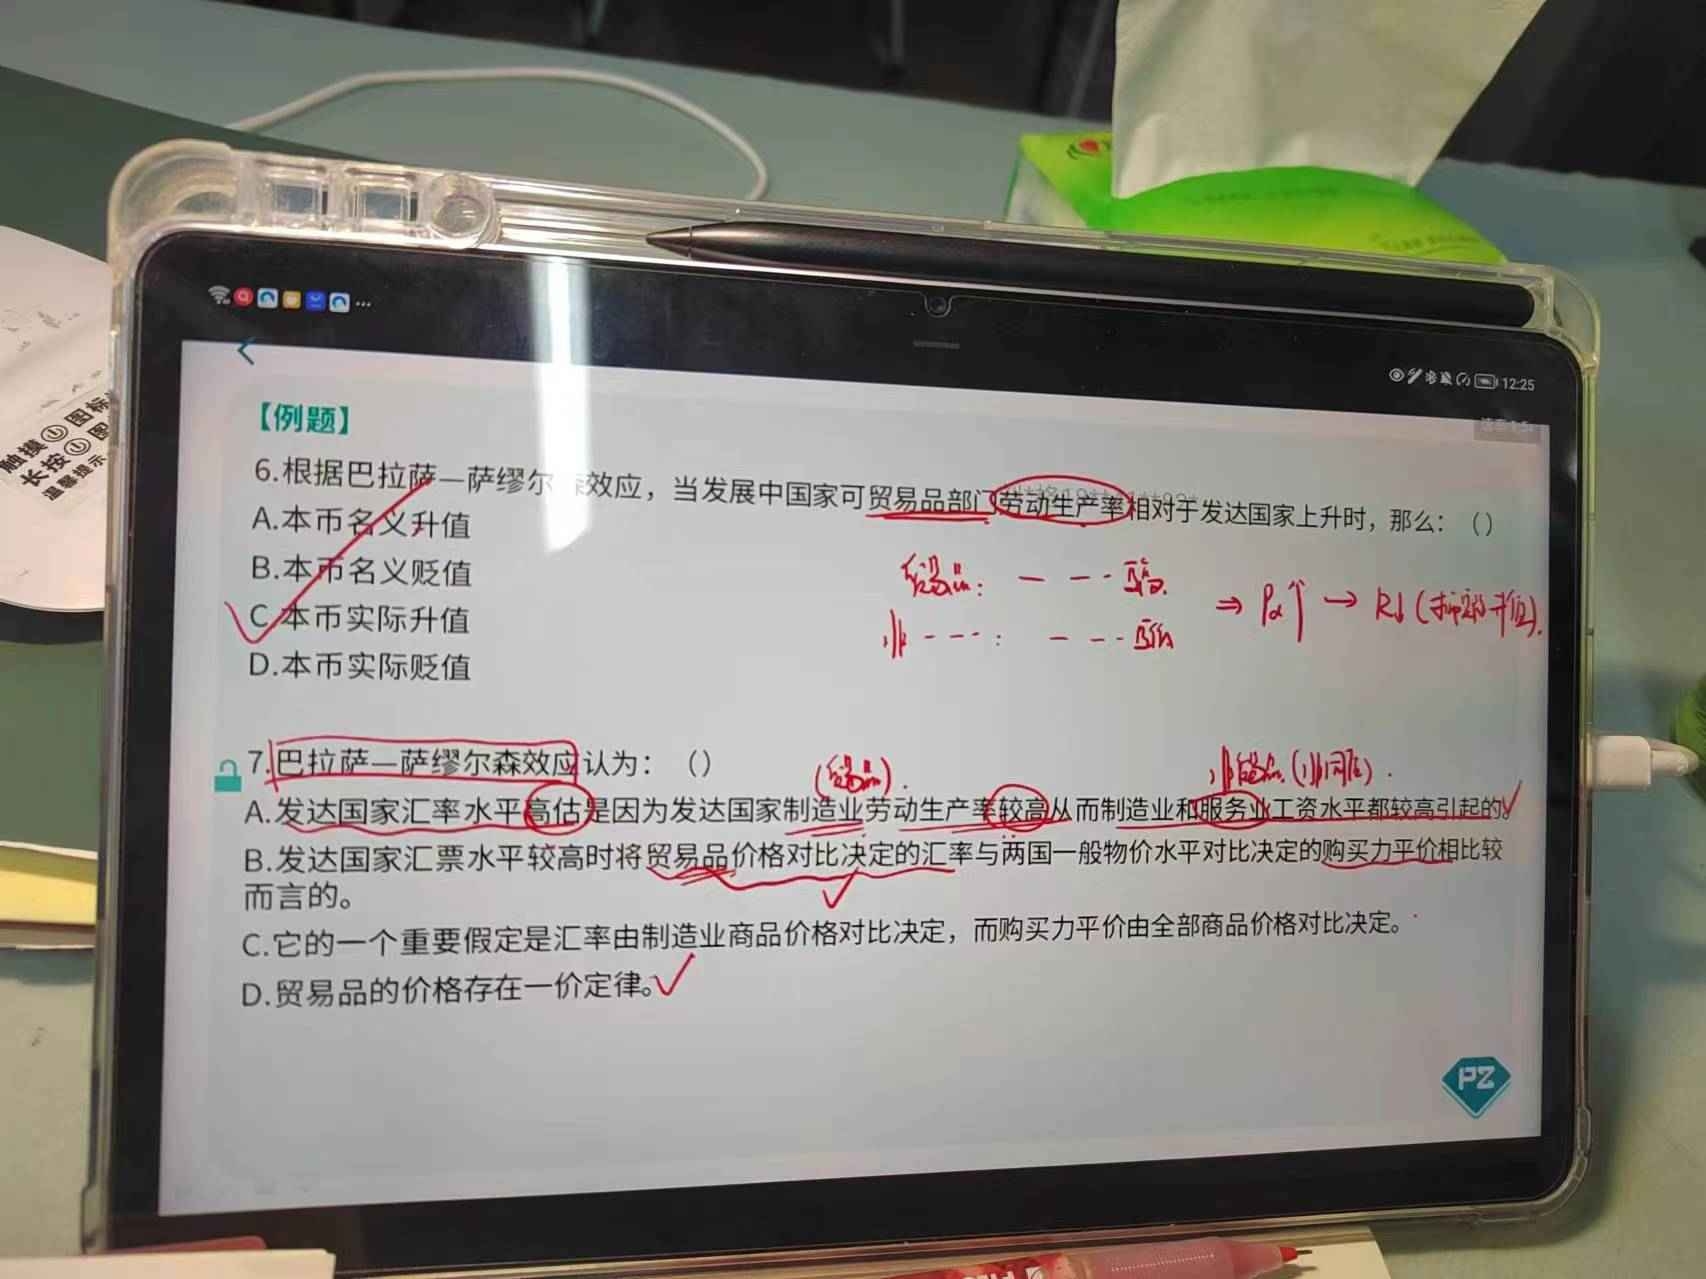 12:25
【例题】
6.根据巴拉萨—萨缪尔森效应，当发展中国家可贸易品部门劳动生产率相对于发达国家上升时，那么：（）
A.本币名义升值
B.本币名义贬值
C.本币实际升值
D.本币实际贬值
贸易品：
⇒ Pd↑ → R↓（本币实际升值）.
7.巴拉萨—萨缪尔森效应认为：（）
（贸易品）.
非贸易品.
A.发达国家汇率水平高估是因为发达国家制造业劳动生产率较高从而制造业和服务业工资水平都较高引起的。
B.发达国家汇票水平较高时将贸易品价格对比决定的汇率与两国一般物价水平对比决定的购买力平价相比较
而言的。
C.它的一个重要假定是汇率由制造业商品价格对比决定，而购买力平价由全部商品价格对比决定。
D.贸易品的价格存在一价定律。
PZ
触摸 图标
长按 图
温馨提示